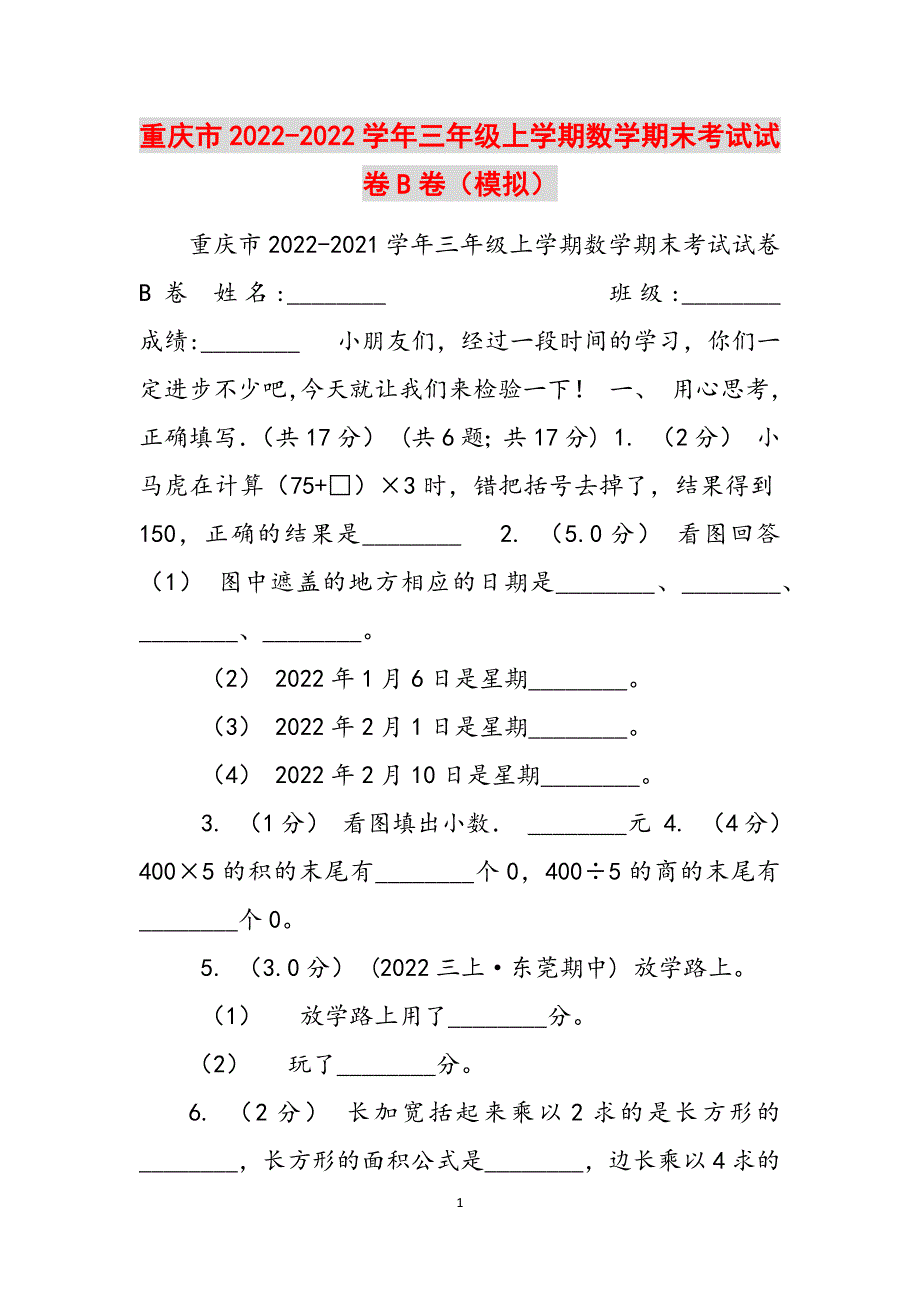 重庆市 2022-2022 学年三年级上学期数学期末考试试
卷 B 卷（模拟）
重庆市 2022-2021 学年三年级上学期数学期末考试试卷
B 卷 姓名:________ 班级:________
成绩:________ 小朋友们，经过一段时间的学习，你们一
定进步不少吧,今天就让我们来检验一下！ 一、 用心思考，
正确填写.（共 17 分） (共 6 题；共 17 分) 1. （2 分） 小
马虎在计算（75+□）×3 时，错把括号去掉了，结果得到
150，正确的结果是________ 2. （5.0 分） 看图回答
（1） 图中遮盖的地方相应的日期是________、________、
________、________。
（2） 2022 年 1 月 6 日是星期________。
（3） 2022 年 2 月 1 日是星期________。
（4） 2022 年 2 月 10 日是星期________。
3. （1 分） 看图填出小数． ________元 4. （4 分）
400×5 的积的末尾有________个 0，400÷5 的商的末尾有
________个 0。
5. （3.0 分） (2022 三上·东莞期中) 放学路上。
（1） 放学路上用了________分。
（2） 玩了________分。
6. （2 分） 长加宽括起来乘以 2 求的是长方形的
________，长方形的面积公式是________，边长乘以 4 求的
1